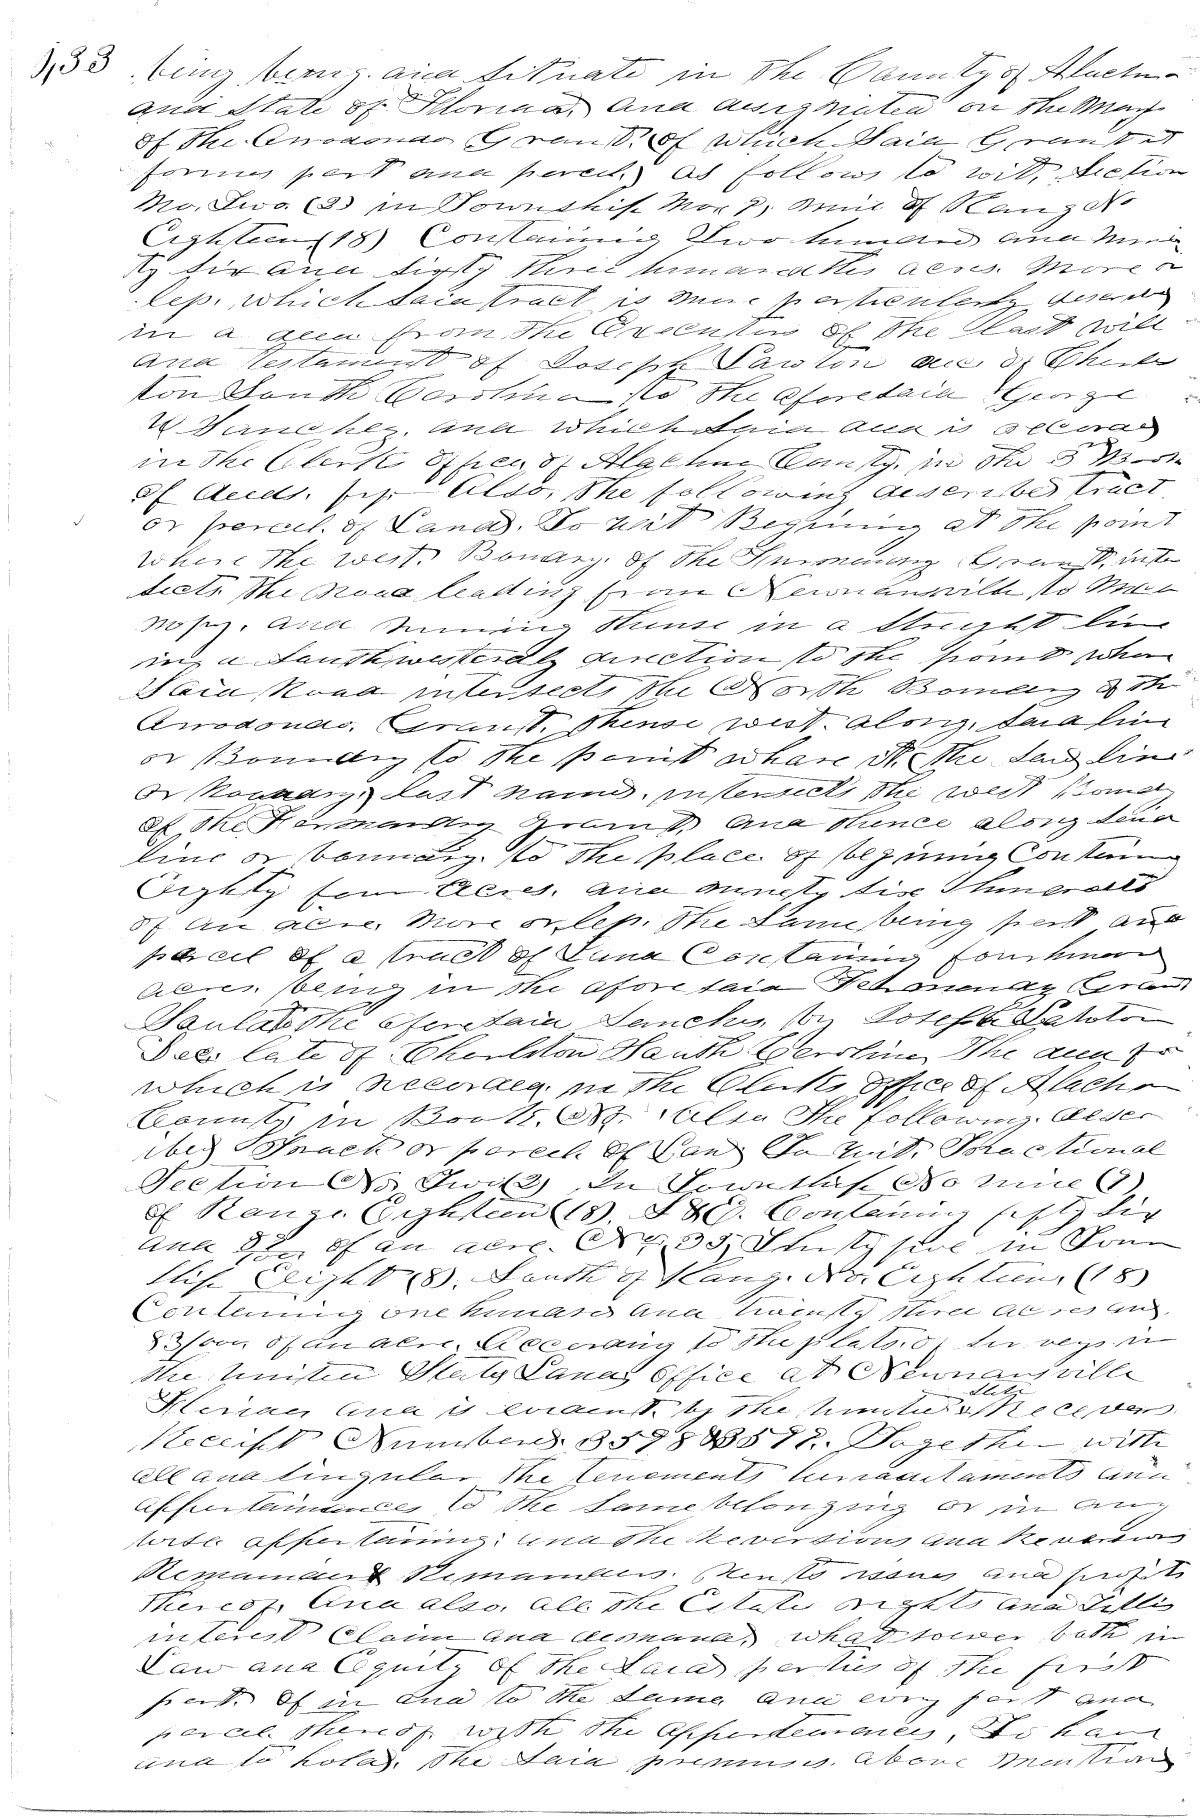 133 being being and situate in the County of Alachua
and State of Florida, and designated on the Map
of the Arrodondo Grant, of which Said Grant it
formes part and parcel, as follows to wit, Section
No. Two (2) in Township No. 9, nine of Range No
Eighteen (18) Containing Two hundred and nine
ty six and sixty three hundredths acres. More or
less. which Said tract is more particularly described
in a deed from the Executors of the last will
and testament of Joseph Lawton dec. of Charles
ton South Carolina to the aforesaid George
W Sanchez. and which Said deed is record
in the Clerks office, of Alachua County, in the Book
of deeds. Also, the following described tract
or parcel of Land. To wit Begining at the point
where the west. Boundry. of the Grant, inter
sects the Road leading from Newnansville to Mica
nopy. and running thense in a Streight line
in a Southwesterdly direction to the point where
Said Road intersects the North Boundry of the
Arrodondo. Grant. thense west. along, said line
or Boundry to the point whare it the Said line
or Boundry, last named. intersects the west Bound
of the Grant, and thence along Said
line or boundry. to the place of begining Containing
Eighty four Acres. and ninety six Hundredths
of an acre. More or less. The Same being part and
parcel of a tract of Land Containing four hundred
acres. being in the afore said Grant
the aforesaid Sanches, by Joseph Lawton
Dec. late of Charlston South Carolina, the deed for
which is recorded. in the Clerks office of Alachua
County in Book. Also the following. descr
ibed Tract or parcel of Land To wit. Fractional
Section No Two (2) In Township No nine (9)
of Range. Eighteen (18). S & E. Containing fifty six
and of an acre. No. 35, Thirty five in Town
ship Eight (8). South of Range. No. Eighteen, (18)
Containing one hundred and twenty three acres and.
83/100. of an acre. According to the plats of Surveys in
the United States Land Office at Newnansville
Florida and is evident. by the United State Receivers
Receipt Numbered. 3598 & 3599. Together with
all and singular the tenements heriaditaments and
appertainances to the same belonging or in any
wise appertaining: and the Reversions and Reversions
Remainder & Remainders. Rents issues and profits
thereof. And also, all the Estate rights and Titles
interest Claim and demand, whatsoever both in
Law and Equity of the Said parties of the first
part. of in and to the same and evry part and
parcel thereof with the appertenances, To have
and to hold. the Said premises. above mention